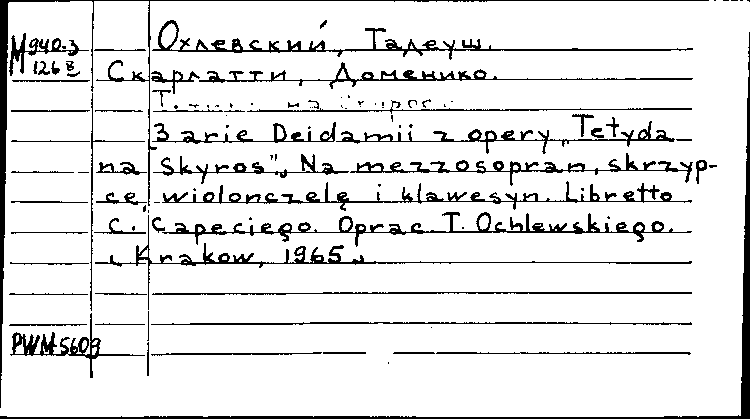 М 940-3
126 8
Охлевский, Тадеуш.
Скарлатти, Доменико.
на
3 arie Deidamii z opery „Tetyda
na Skyros". Na mezzosopran, skrzyp-
ce, wiolonczelę i klawesyn. Libretto
C. Capeciego. Oprac. T. Ochlewskiego.
Krakow, 1965.
PWM-5609